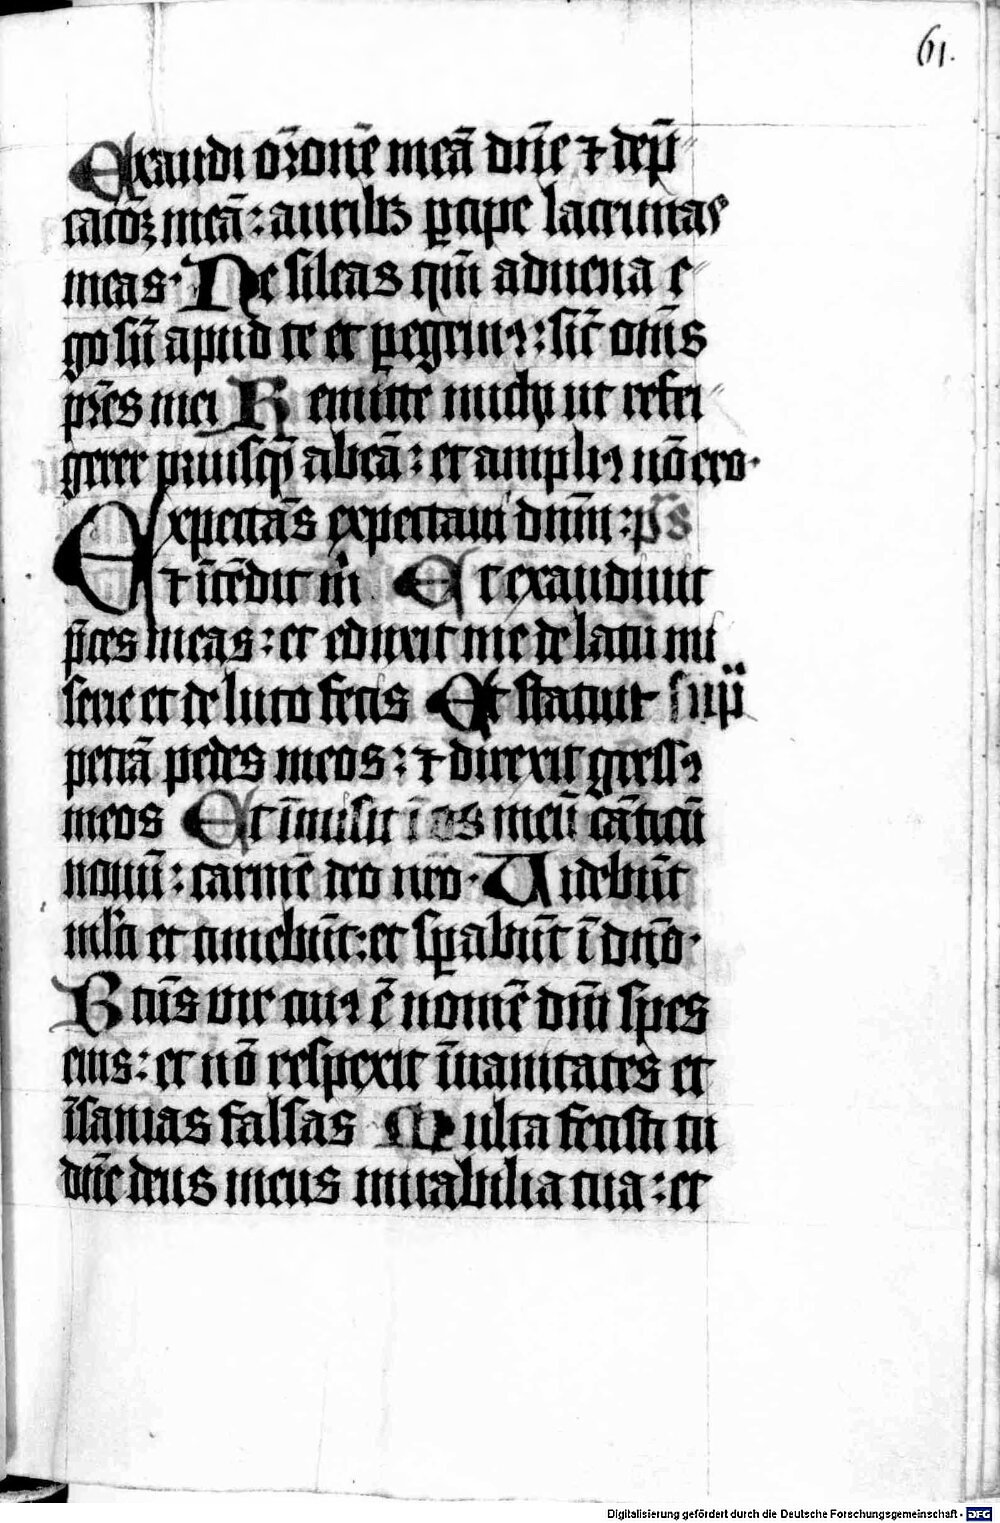 61.
Exaudi or̄onē meā dn̄e ⁊ dep̄
cac̄oꝫ meā : auribꝫ ꝑcipe lacrimas
meas · Ne sileas qm̄ aduena e
go sū apud te et ꝑegrinꝰ : sic̄ om̄s
pr̄es mei Remitte michi ut refri
gerer priusqꝫ abeā : et ampliꝰ nō ero ·
Expectās expectaui dn̄m : p̄s
Et ītēdit m̄ Et exaudiuit
p̄ces meas : et eduxit me de lacu mi
serie et de luto fecis Et statuit suꝑ
petrā pedes meos : ⁊ direxit gressꝰ
meos Et īmisit ī os meū cāticū
nouū : carmē deo nr̄o · Videbūt
ml̄ti et timebūt : et sꝑabūt ī dn̄o ·
Bt̄us vir cuiꝰ ē nomē dn̄i spes
eius : et nō respexit ī uanitates et
īsanias falsas Multa fecisti tu
dn̄e deus meus mirabilia tua : et
Digitalisierung gefördert durch die Deutsche Forschungsgemeinschaft - DFG